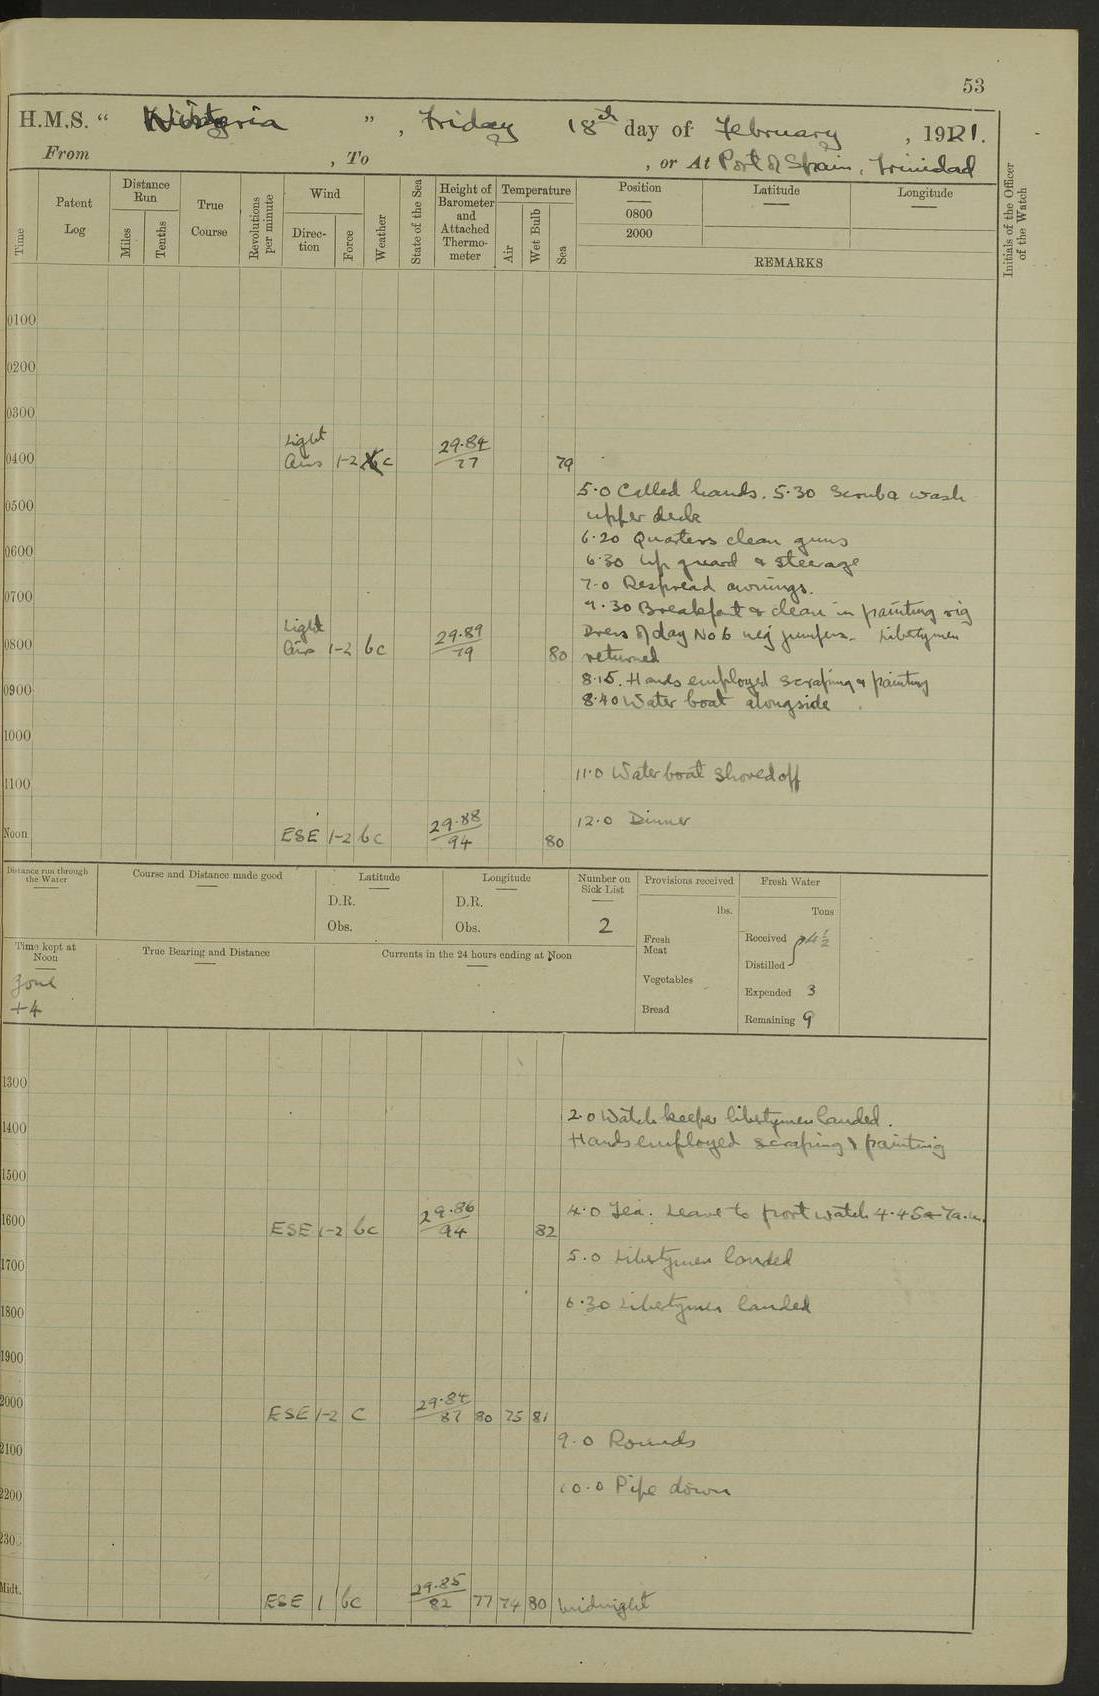 53
H.M.S. " Wistaria " , Friday 18th day of February , 1921.
From , To , or At Port of Spain, Trinidad
Time
Patent Log
Distance Run
Miles
Tenths
True Course
Revolutions per minute
Wind
Direction
Force
Weather
State of the Sea
Height of Barometer and Attached Thermometer
Temperature
Air
Wet Bulb
Sea
Position
0800
2000
Latitude
Longitude
REMARKS
Initials of the Officer of the Watch
0100
0200
0300
0400 Light Airs 1-2 c 29.84 77 79
5.0 Called hands. 5.30 Scrub & wash
0500
upper deck
6.20 Quarters clean guns
0600
6.30 Up guard & steerage
7.0 Respread awnings.
0700
7.30 Breakfast & clean in painting rig
0800 Light Airs 1-2 bc 29.89 79 80
Dress of day No 6 neg jumpers. Libertymen
returned
8.15. Hands employed scraping & painting
0900
8.40 Water boat alongside
1000
11.0 Water boat shoved off
1100
12.0 Dinner
Noon ESE 1-2 bc 29.88 94 80
Distance run through the Water
Course and Distance made good
Latitude
D.R.
Obs.
Longitude
D.R.
Obs.
Number on Sick List
2
Provisions received
lbs.
Fresh Meat
Vegetables
Bread
Fresh Water
Tons
Received 4½
Distilled
Expended 3
Remaining 9
Time kept at Noon
Zone
+4
True Bearing and Distance
Currents in the 24 hours ending at Noon
1300
2.0 Watch keeper libertymen landed.
1400
Hands employed scraping & painting
1500
4.0 Tea. Leave to port watch 4.45 to 7a.m.
1600 ESE 1-2 bc 29.86 94 82
5.0 Libertymen landed
1700
6.30 Libertymen landed
1800
1900
2000 ESE 1-2 c 29.84 87 80 75 81
9.0 Rounds
2100
10.0 Pipe down
2200
230
Midt. ESE 1 bc 29.85 82 77 74 80 Midnight